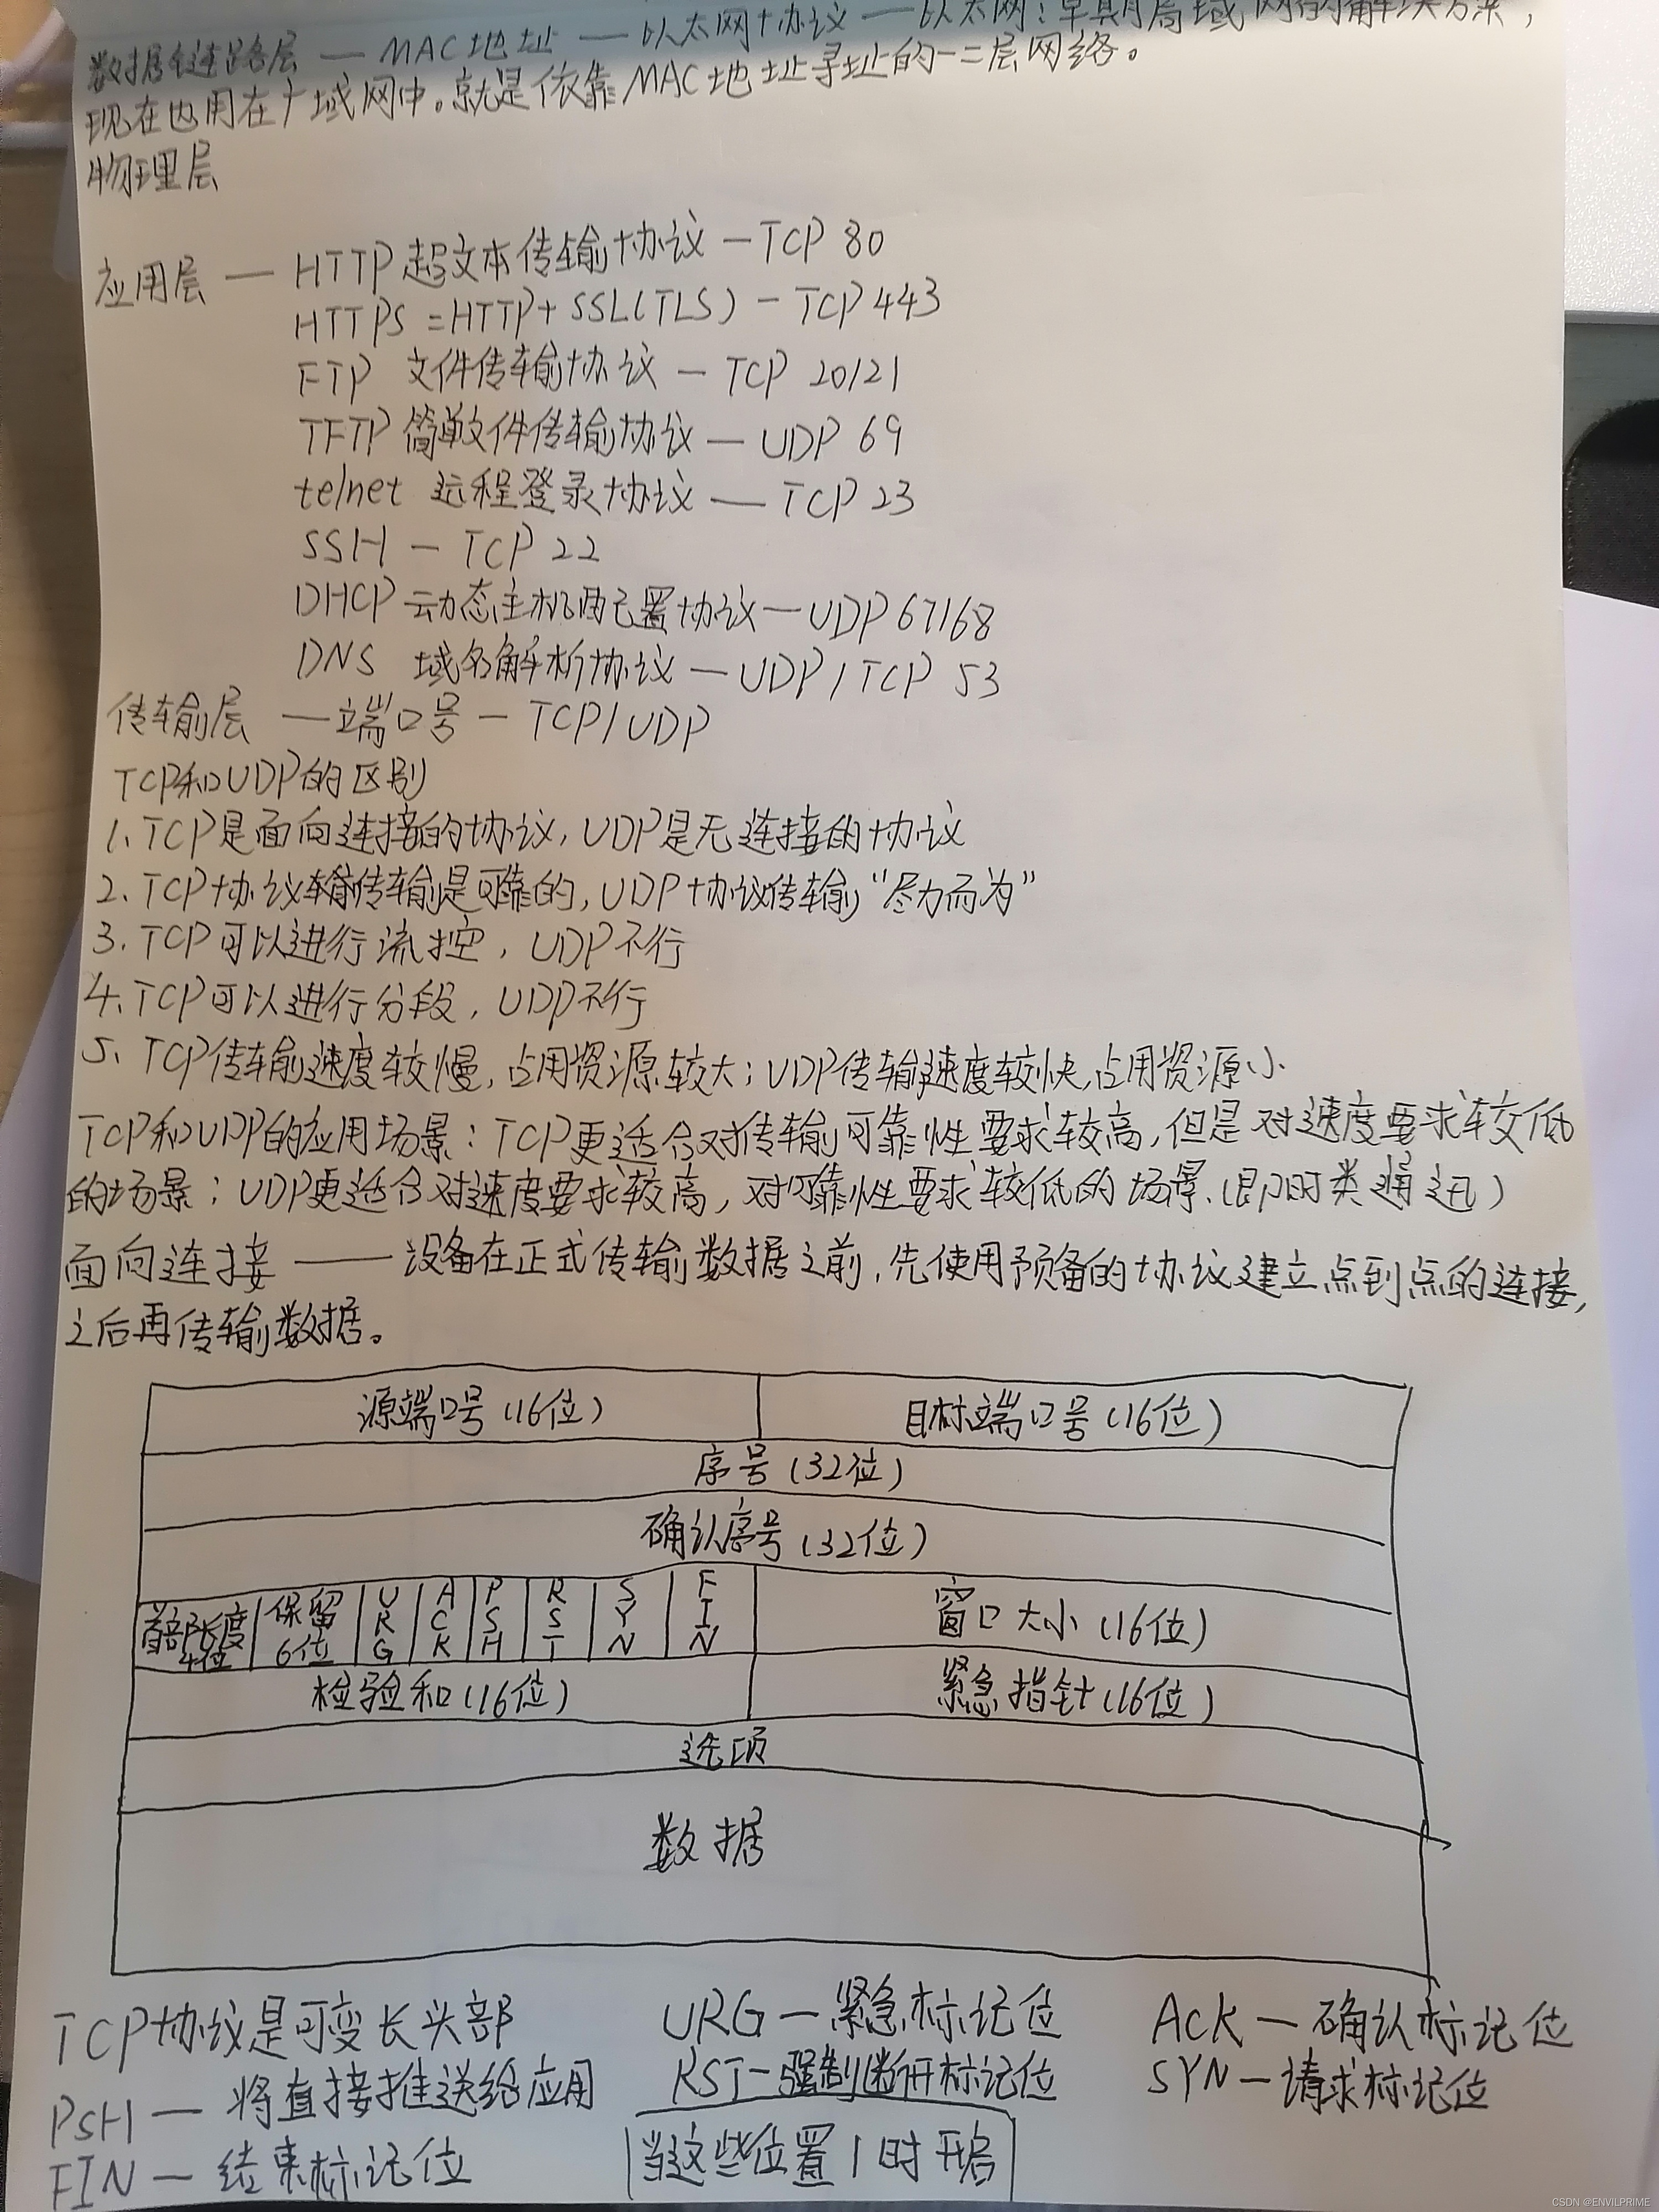 数据链路层 — MAC地址 — 以太网协议 — 以太网：早期局域网的解决方案，
现在也用在广域网中。就是依靠MAC地址寻址的一二层网络。
物理层
应用层 — HTTP 超文本传输协议 — TCP 80
HTTPS = HTTP + SSL(TLS) - TCP 443
FTP 文件传输协议 — TCP 20/21
TFTP 简单文件传输协议 — UDP 69
telnet 远程登录协议 — TCP 23
SSH — TCP 22
DHCP 动态主机配置协议 — UDP 67/68
DNS 域名解析协议 — UDP/TCP 53
传输层 — 端口号 - TCP/UDP
TCP和UDP的区别
1. TCP是面向连接的协议, UDP是无连接的协议
2. TCP协议传输是可靠的, UDP协议传输“尽力而为”
3. TCP可以进行流控, UDP不行
4. TCP可以进行分段, UDP不行
5、TCP传输速度较慢, 占用资源较大; UDP传输速度较快, 占用资源小
TCP和UDP的应用场景: TCP更适合对传输可靠性要求较高, 但是对速度要求较低
的场景; UDP更适合对速度要求较高, 对可靠性要求较低的场景. (即时类通迅)
面向连接 —— 设备在正式传输数据之前, 先使用预备的协议建立点到点的连接,
之后再传输数据。
源端口号(16位) 目标端口号(16位)
序号(32位)
确认序号(32位)
首部长度4位 保留6位 URG ACK PSH RST SYN FIN 窗口大小(16位)
检验和(16位) 紧急指针(16位)
选项
数据
TCP协议是可变长头部 URG — 紧急标记位 ACK — 确认标记位
PSH — 将直接推送给应用 RST — 强制断开标记位 SYN — 请求标记位
FIN — 结束标记位 当这些位置1时开启
CSDN @ENVILPRIME